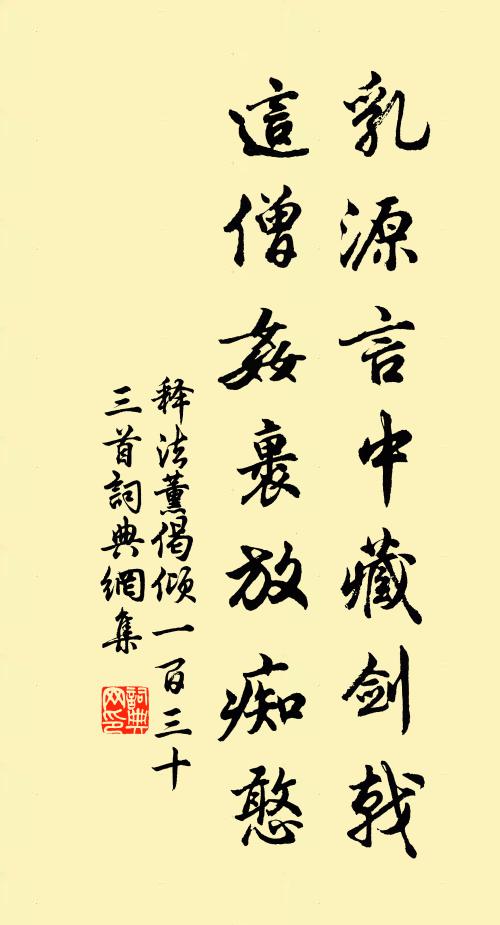 乳源言中藏剑戟
這僧姦裹放痴憨
释法薰偈倾一百三十
三首詞典網集
詞典网印